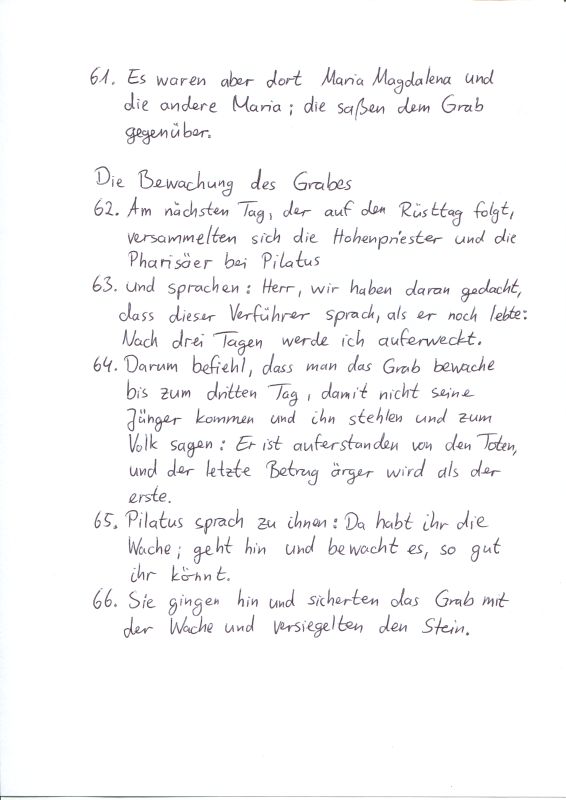 61. Es waren aber dort Maria Magdalena und
die andere Maria; die saßen dem Grab
gegenüber.
Die Bewachung des Grabes
62. Am nächsten Tag, der auf den Rüsttag folgt,
versammelten sich die Hohenpriester und die
Pharisäer bei Pilatus
63. und sprachen: Herr, wir haben daran gedacht,
dass dieser Verführer sprach, als er noch lebte:
Nach drei Tagen werde ich auferweckt.
64. Darum befiehl, dass man das Grab bewache
bis zum dritten Tag, damit nicht seine
Jünger kommen und ihn stehlen und zum
Volk sagen: Er ist auferstanden von den Toten,
und der letzte Betrug ärger wird als der
erste.
65. Pilatus sprach zu ihnen: Da habt ihr die
Wache; geht hin und bewacht es, so gut
ihr könnt.
66. Sie gingen hin und sicherten das Grab mit
der Wache und versiegelten den Stein.